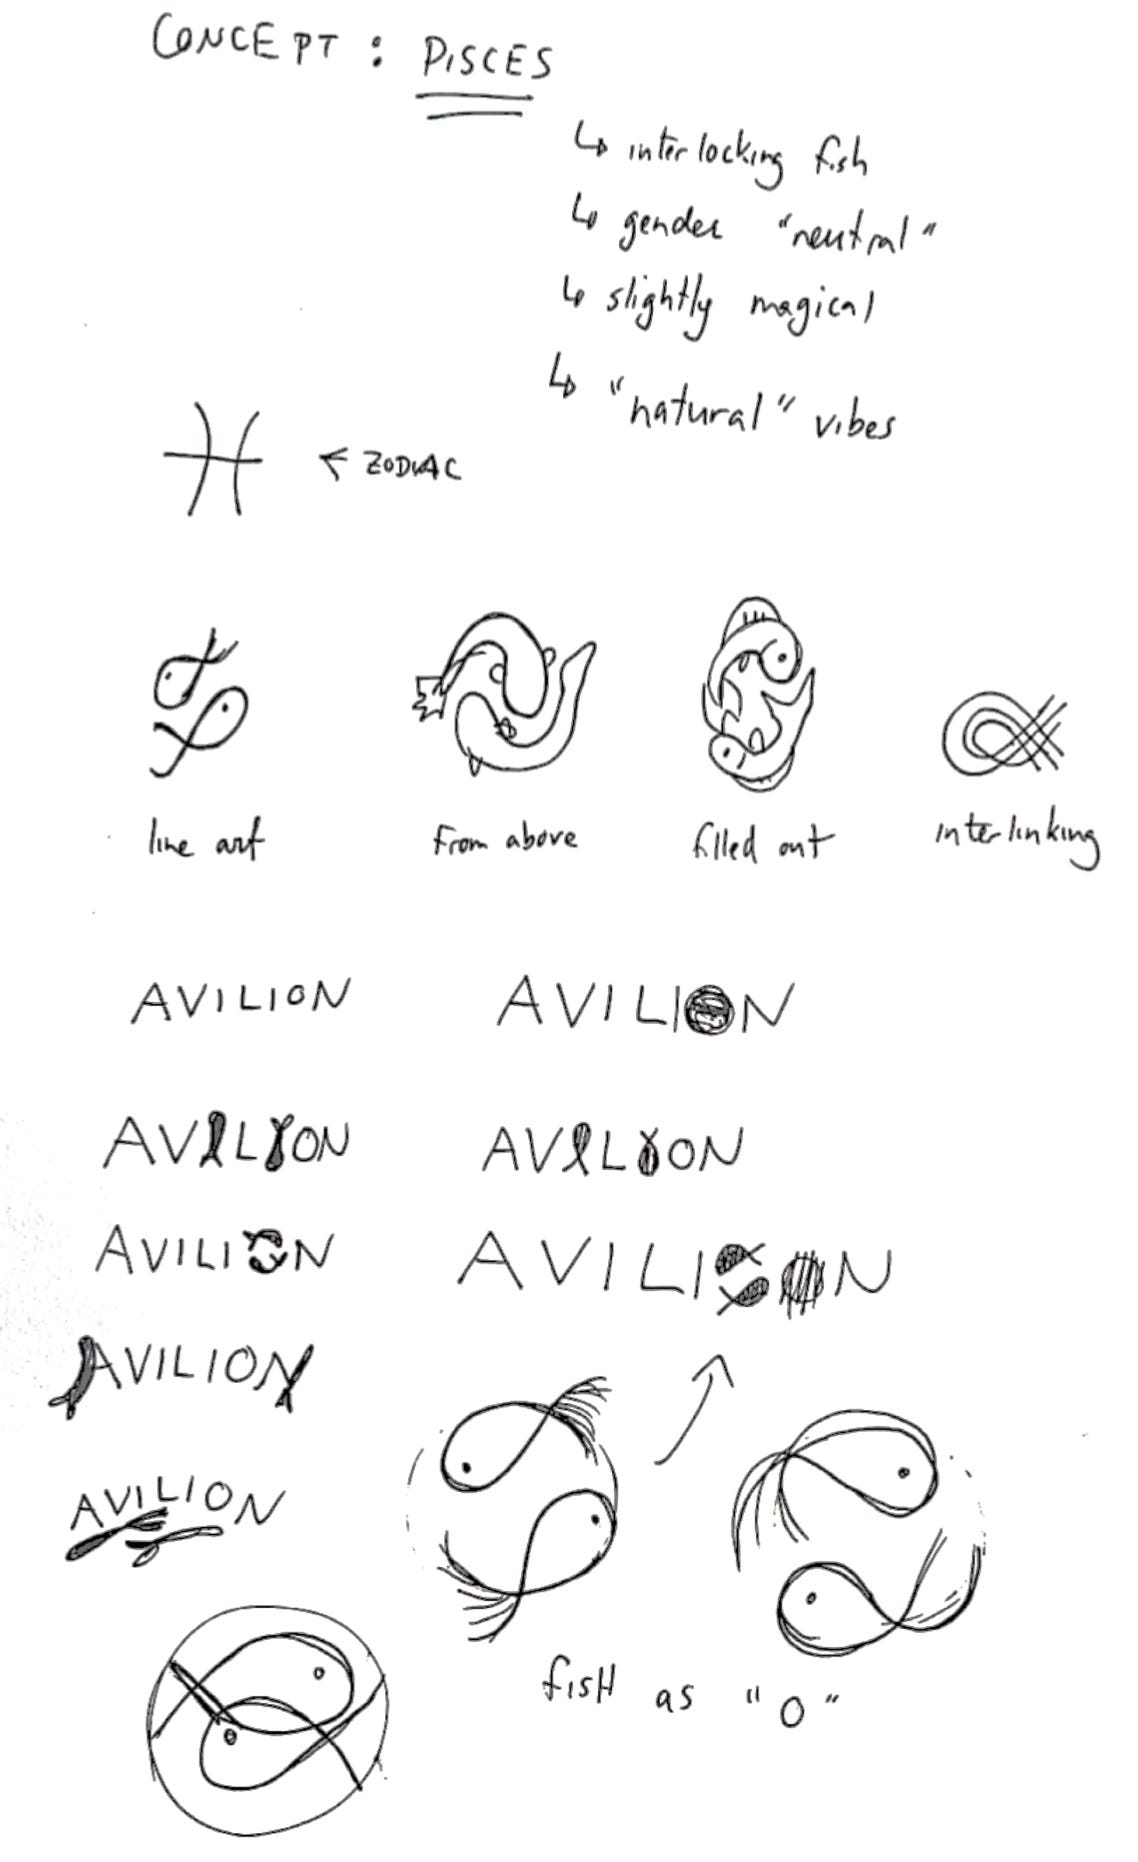 CONCEPT : PISCES
↳ interlocking fish
↳ gender "neutral"
↳ slightly magical
↳ "natural" vibes
← ZODIAC
line art
From above
filled out
interlinking
AVILION
AVILION
AVILION
AVILION
AVILION
AVILION
AVILION
AVILION
fisH as "O"